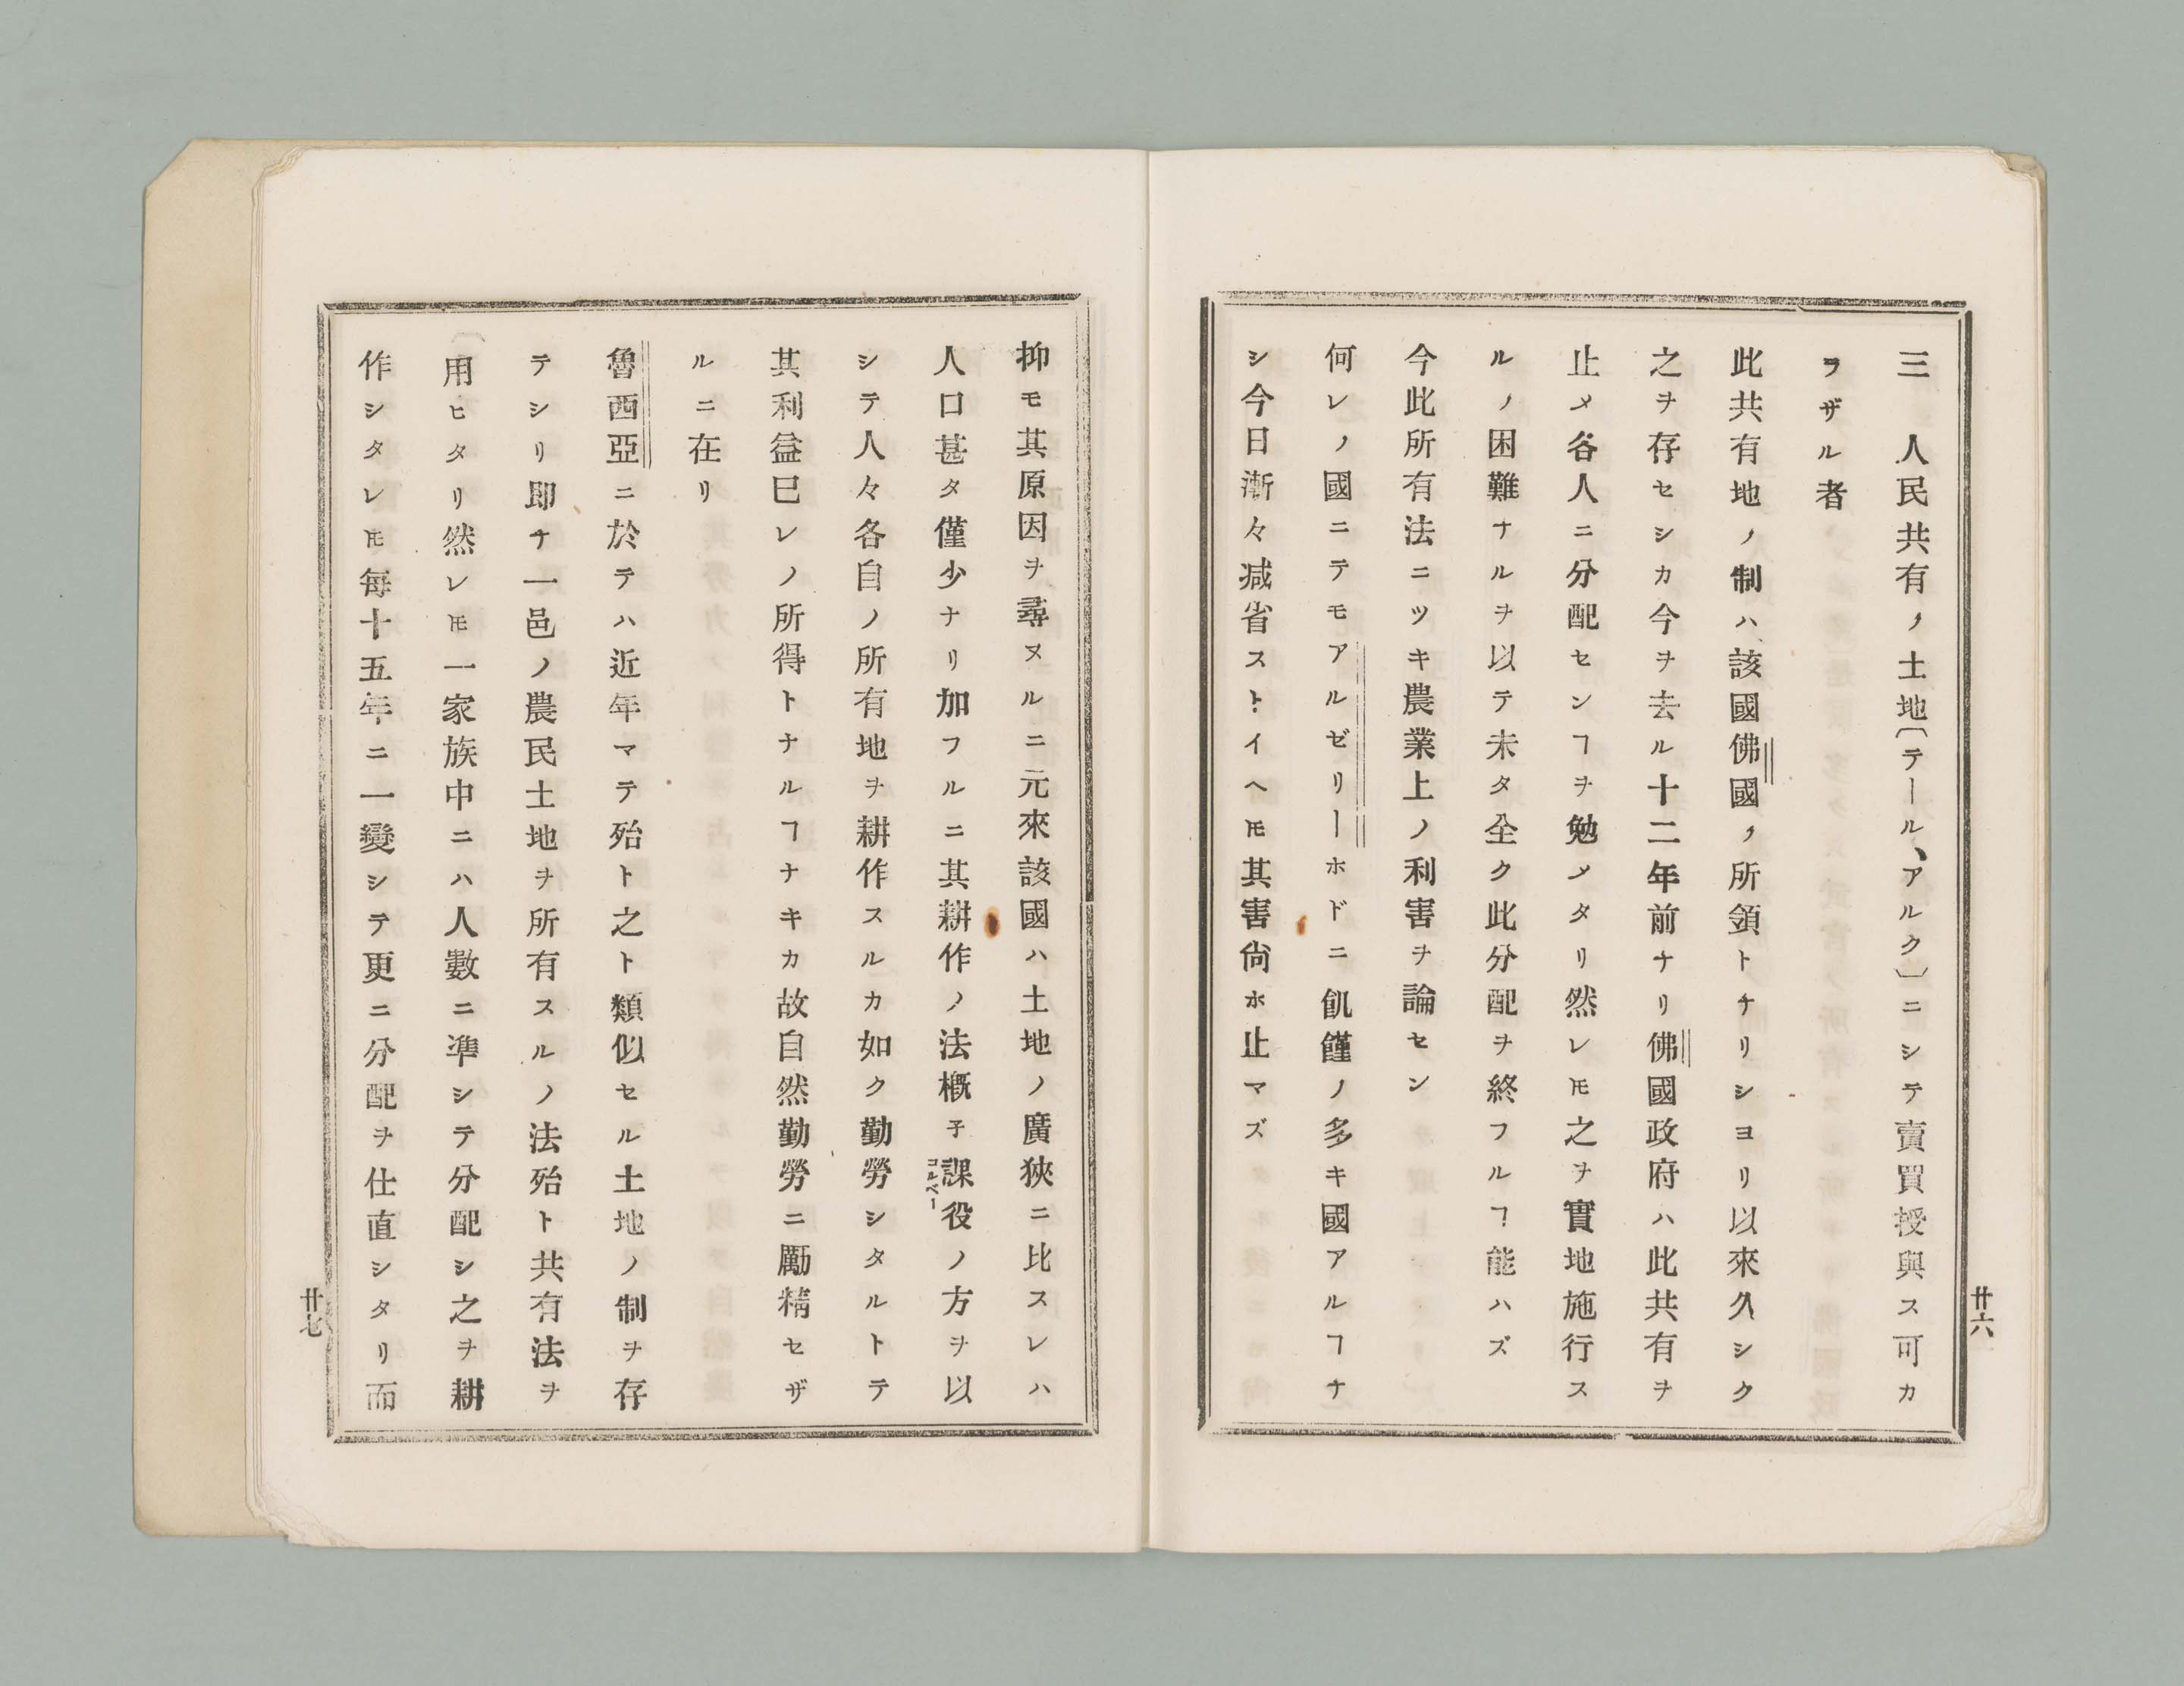 三　人民共有ノ土地〔テール、アルク〕ニシテ賣買授與ス可カ
ラザル者
此共有地ノ制ハ該國佛國ノ所領トナリシヨリ以來久シク
之ヲ存セシカ今ヲ去ル十二年前ナリ佛國政府ハ此共有ヲ
止メ各人ニ分配センヿヲ勉メタリ然レ𪜈之ヲ實地施行ス
ルノ困難ナルヲ以テ未タ全ク此分配ヲ終フルヿ能ハズ
今此所有法ニツキ農業上ノ利害ヲ論セン
何レノ國ニテモアルゼリーホドニ飢饉ノ多キ國アルヿナ
シ今日漸々减省ストイヘ𪜈其害尙ホ止マズ
廿六
抑モ其原因ヲ尋ヌルニ元來該國ハ土地ノ廣狹ニ比スレハ
人口甚タ僅少ナリ加フルニ其耕作ノ法槪子課役ノ方ヲ以
コルベー
シテ人々各自ノ所有地ヲ耕作スルカ如ク勤勞シタルトテ
其利益已レノ所得トナルヿナキカ故自然勤勞ニ勵精セザ
ルニ在リ
魯西亞ニ於テハ近年マテ殆ト之ト類似セル土地ノ制ヲ存
テシリ即チ一邑ノ農民土地ヲ所有スルノ法殆ト共有法ヲ
用ヒタリ然レ𪜈一家族中ニハ人數ニ凖シテ分配シ之ヲ耕
作シタレ𪜈每十五年ニ一變シテ更ニ分配ヲ仕直シタリ而
廿七